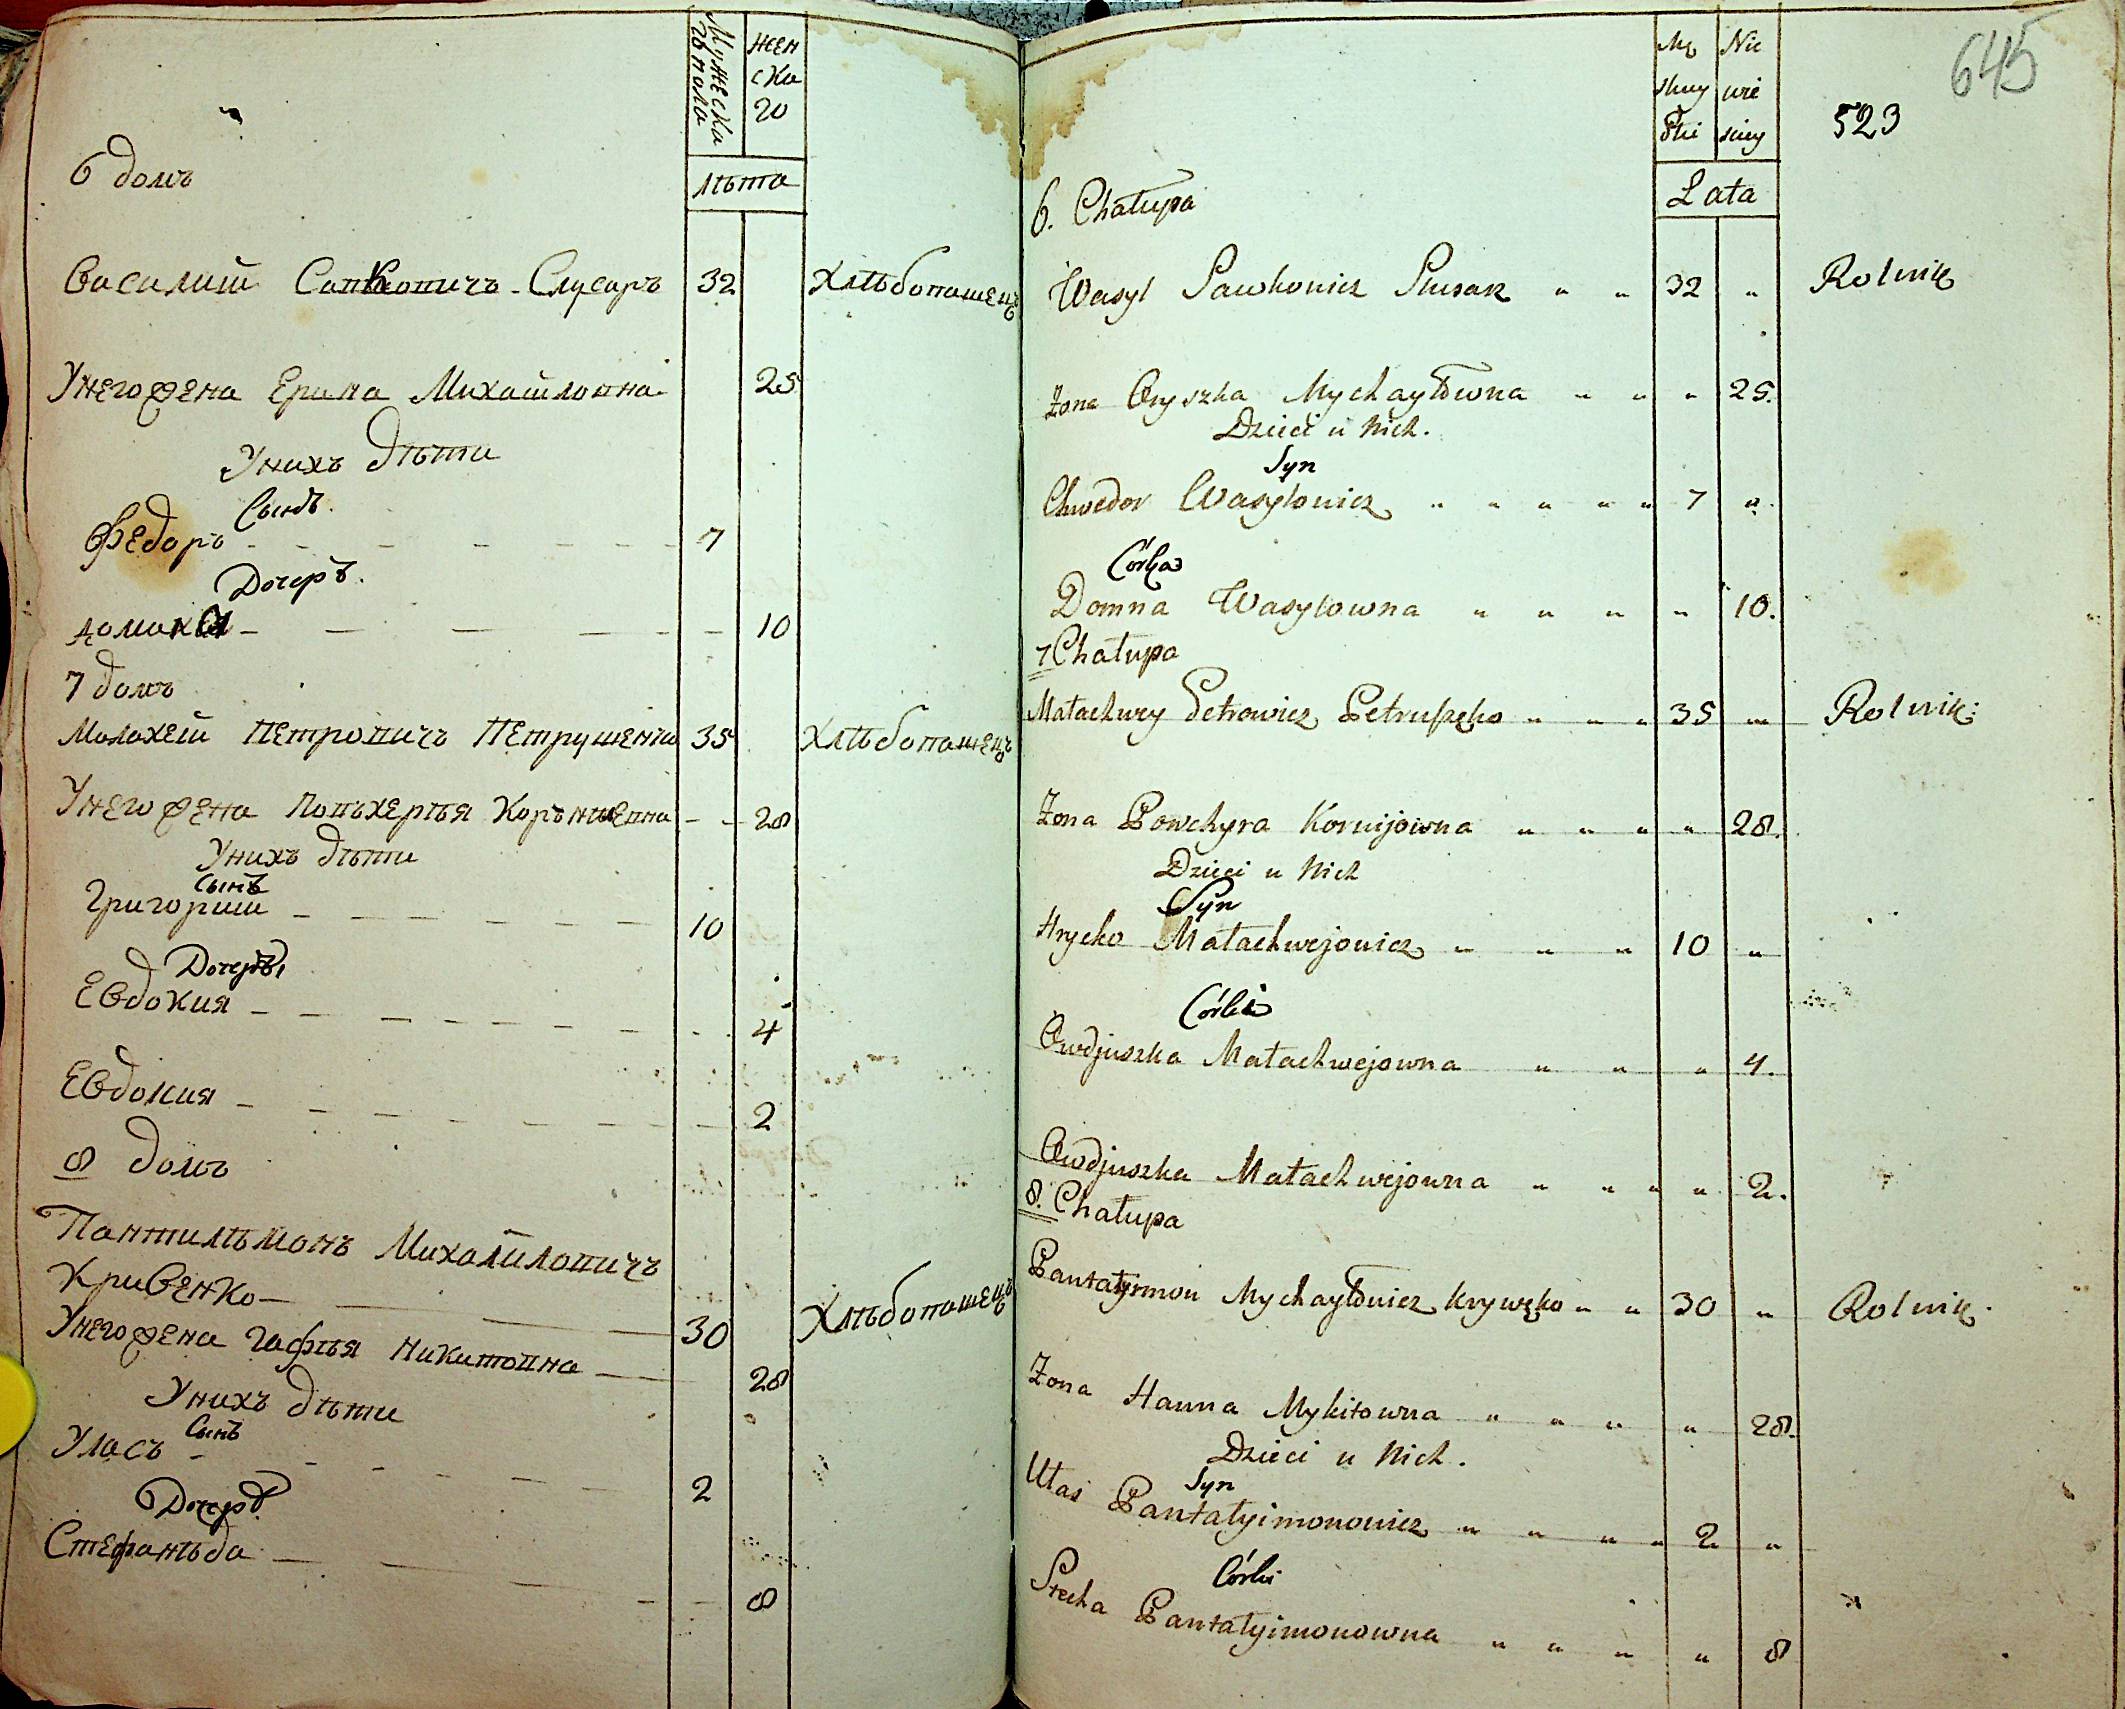 Мужеска
го пола
жен
ска
го
лѣта
6 домъ
Василий Савковичъ Слусаръ 32 хлѣбопашецъ
Унего жена Ерина Михайловна 25
Унихъ дѣти
Сынъ
Федоръ 7
Дочеръ
Домна 10
7 домъ
Малахей Петровичъ Петрушенко 35 хлѣбопашецъ
Унего жена Повъхерья Корънѣевна 28
Унихъ дѣти
Сынъ
Григорий 10
Дочеры
Евдокия 4
Евдокия 2
8 домъ
Пантилѣмонъ Михайловичъ
Кривенко 30 хлѣбопашецъ
Унего жена Гафья Никитовна 28
Унихъ дѣти
Сынъ
Уласъ 2
Дочеръ
Стефанѣда 8
645
523
Mę
skuy
Płci
Nie
wie
sciey
Lata
6. Chałupa
Wasyl Sawkowicz Slusarz " " 32 " Rolnik
Żona Oryszka Mychayłowna " " " 25.
Dzieci u Nich.
Syn
Chwedor Wasylowicz " " " " " 7 "
Córka
Domna Wasylowna " " " " 10.
7 Chałupa
Małachwey Petrowicz Petruszęko " " " 35 " Rolnik:
Żona Powchyra Kornijowna " " " " 28.
Dzieci u Nich
Syn
Hrycko Małachwejowicz " " " 10 "
Córki
Owdjuszka Małachwejowna " " " 4.
Owdjuszka Małachwejowna " " " " 2.
8. Chałupa
Pantałymon Mychayłowicz Krywęko " " 30 " Rolnik.
Żona Hanna Mykitowna " " " " 28.
Dzieci u Nich.
Syn
Ułas Pantałyimonowicz " " " " 2 "
Córki
Stecha Pantałyimonowna " " " " 8